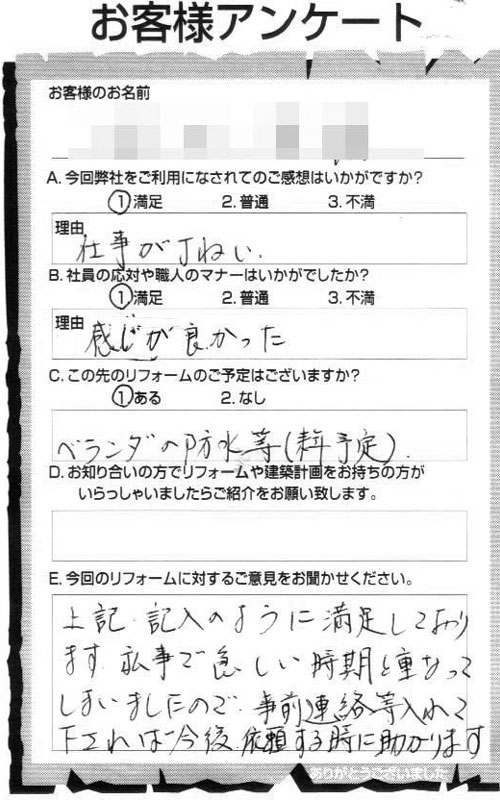 お客様アンケート
お客様のお名前
A.今回弊社をご利用になされてのご感想はいかがですか?
①満足 2.普通 3.不満
理由
仕事が丁ねい.
B.社員の応対や職人のマナーはいかがでしたか?
①満足 2.普通 3.不満
理由
感じが良かった
C.この先のリフォームのご予定はございますか?
①ある 2.なし
ベランダの防水等(予定).
D.お知り合いの方でリフォームや建築計画をお持ちの方が
いらっしゃいましたらご紹介をお願い致します。
E.今回のリフォームに対するご意見をお聞かせください。
上記.記入のように満足しており
ます.私事で忙しい時期と重なって
しまいましたので.事前連絡等入れて
下されば今後依頼する時に助かります
ありがとうございました